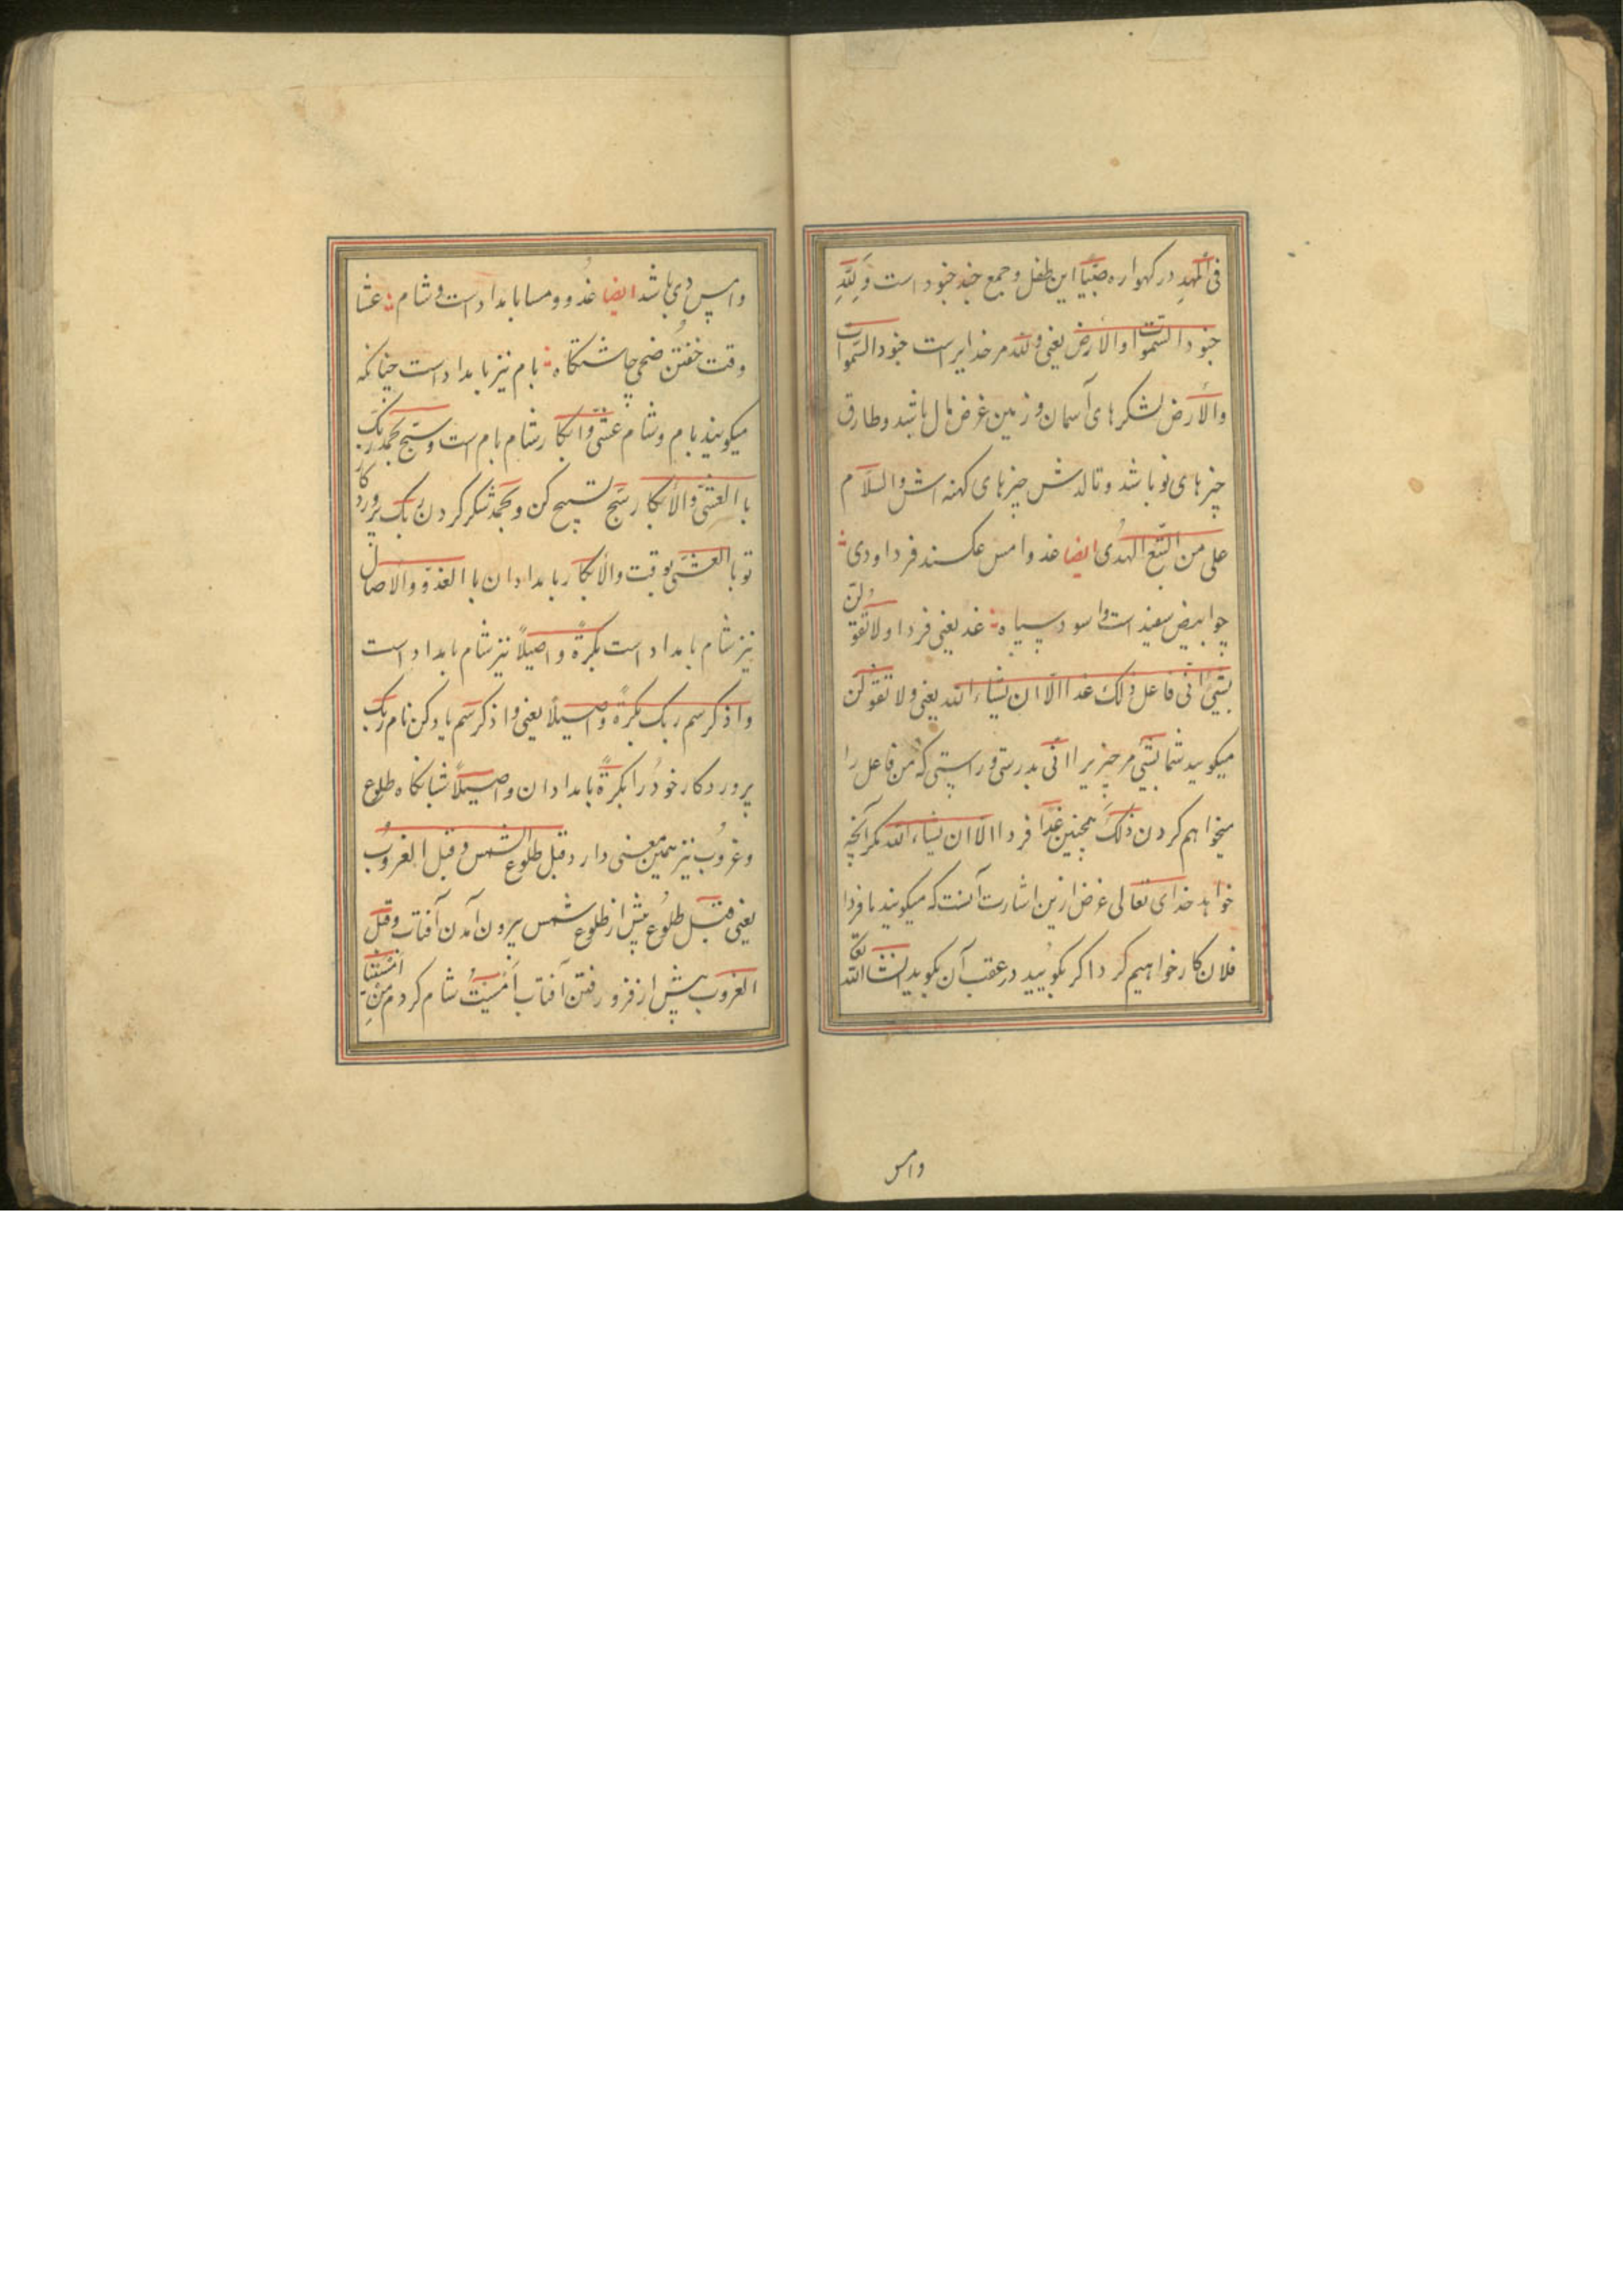 فی المَهدِ در کهواره صَبِیًّا این طفل و جمع جند جنود است وَلِلّهِ
جنود السّموات والاَرض یعنی ولله مر خدایراست جنود السّموات
والاَرض لشکرهای آسمان و زمین غرض مال باشد و طارق
چیزهای نو باشد و تالدش چیزهای کهنه اش والسّلام
علی من اتّبع الهدی ایضا غد و امس عکسند فردا و دی
چو ابیض سفیدست و اسود سیاه غد یعنی فردا ولا تقولنّ
بشیءٍ انّی فاعل ذلک غدا الّا ان یشاء الله یعنی ولا تقولن
میکویید شما بشیء مر چیز یرا انّی بدرستی و راستی که من فاعل را
میخواهم کردن ذلک همچنین غدًا فردا الّا ان یشاء الله مکر آنچه
خواهد خدای تعالی غرض ازین اشارت آنست که میکویند با فردا
فلان کار خواهیم کرد اکر بکویید در عقب آن بکویید انشاالله تعا
وامس
وامس دی باشد ایضا غدو و مسا بامدادست و شام عشا
وقت خفتن ضحی چاشتکاه بام نیز بامدادست چنانکه
میکویند بام و شام عشیّ و ابکار شام بام است و سبّح بحمد ربّک
با العشیّ والابکار سبّح تسبیح کن و بحمد شکر کردن ربّک پرورد کار
تو با العشیّ بوقت والابکار بامدادان با الغدوّ والآصال
نیز شام بامدادست بکرةً و اصیلاً نیز شام بامداد است
واذکر سم ربک بکرةً و اصیلًا یعنی واذکر سم یاد کن نام ربّک
پروردکار خود را بکرةً بامدادان و اصیلًا شبانکاه طلوع
و غروب نیز همین معنی دارد قبل طلوع الشمس و قبل الغروب
یعنی قبل طلوع پیش از طلوع شمس بیرون آمدن آفتاب و قبل
الغروب پیش از فرو رفتن آفتاب اَمْسَیْتُ شام کردم من